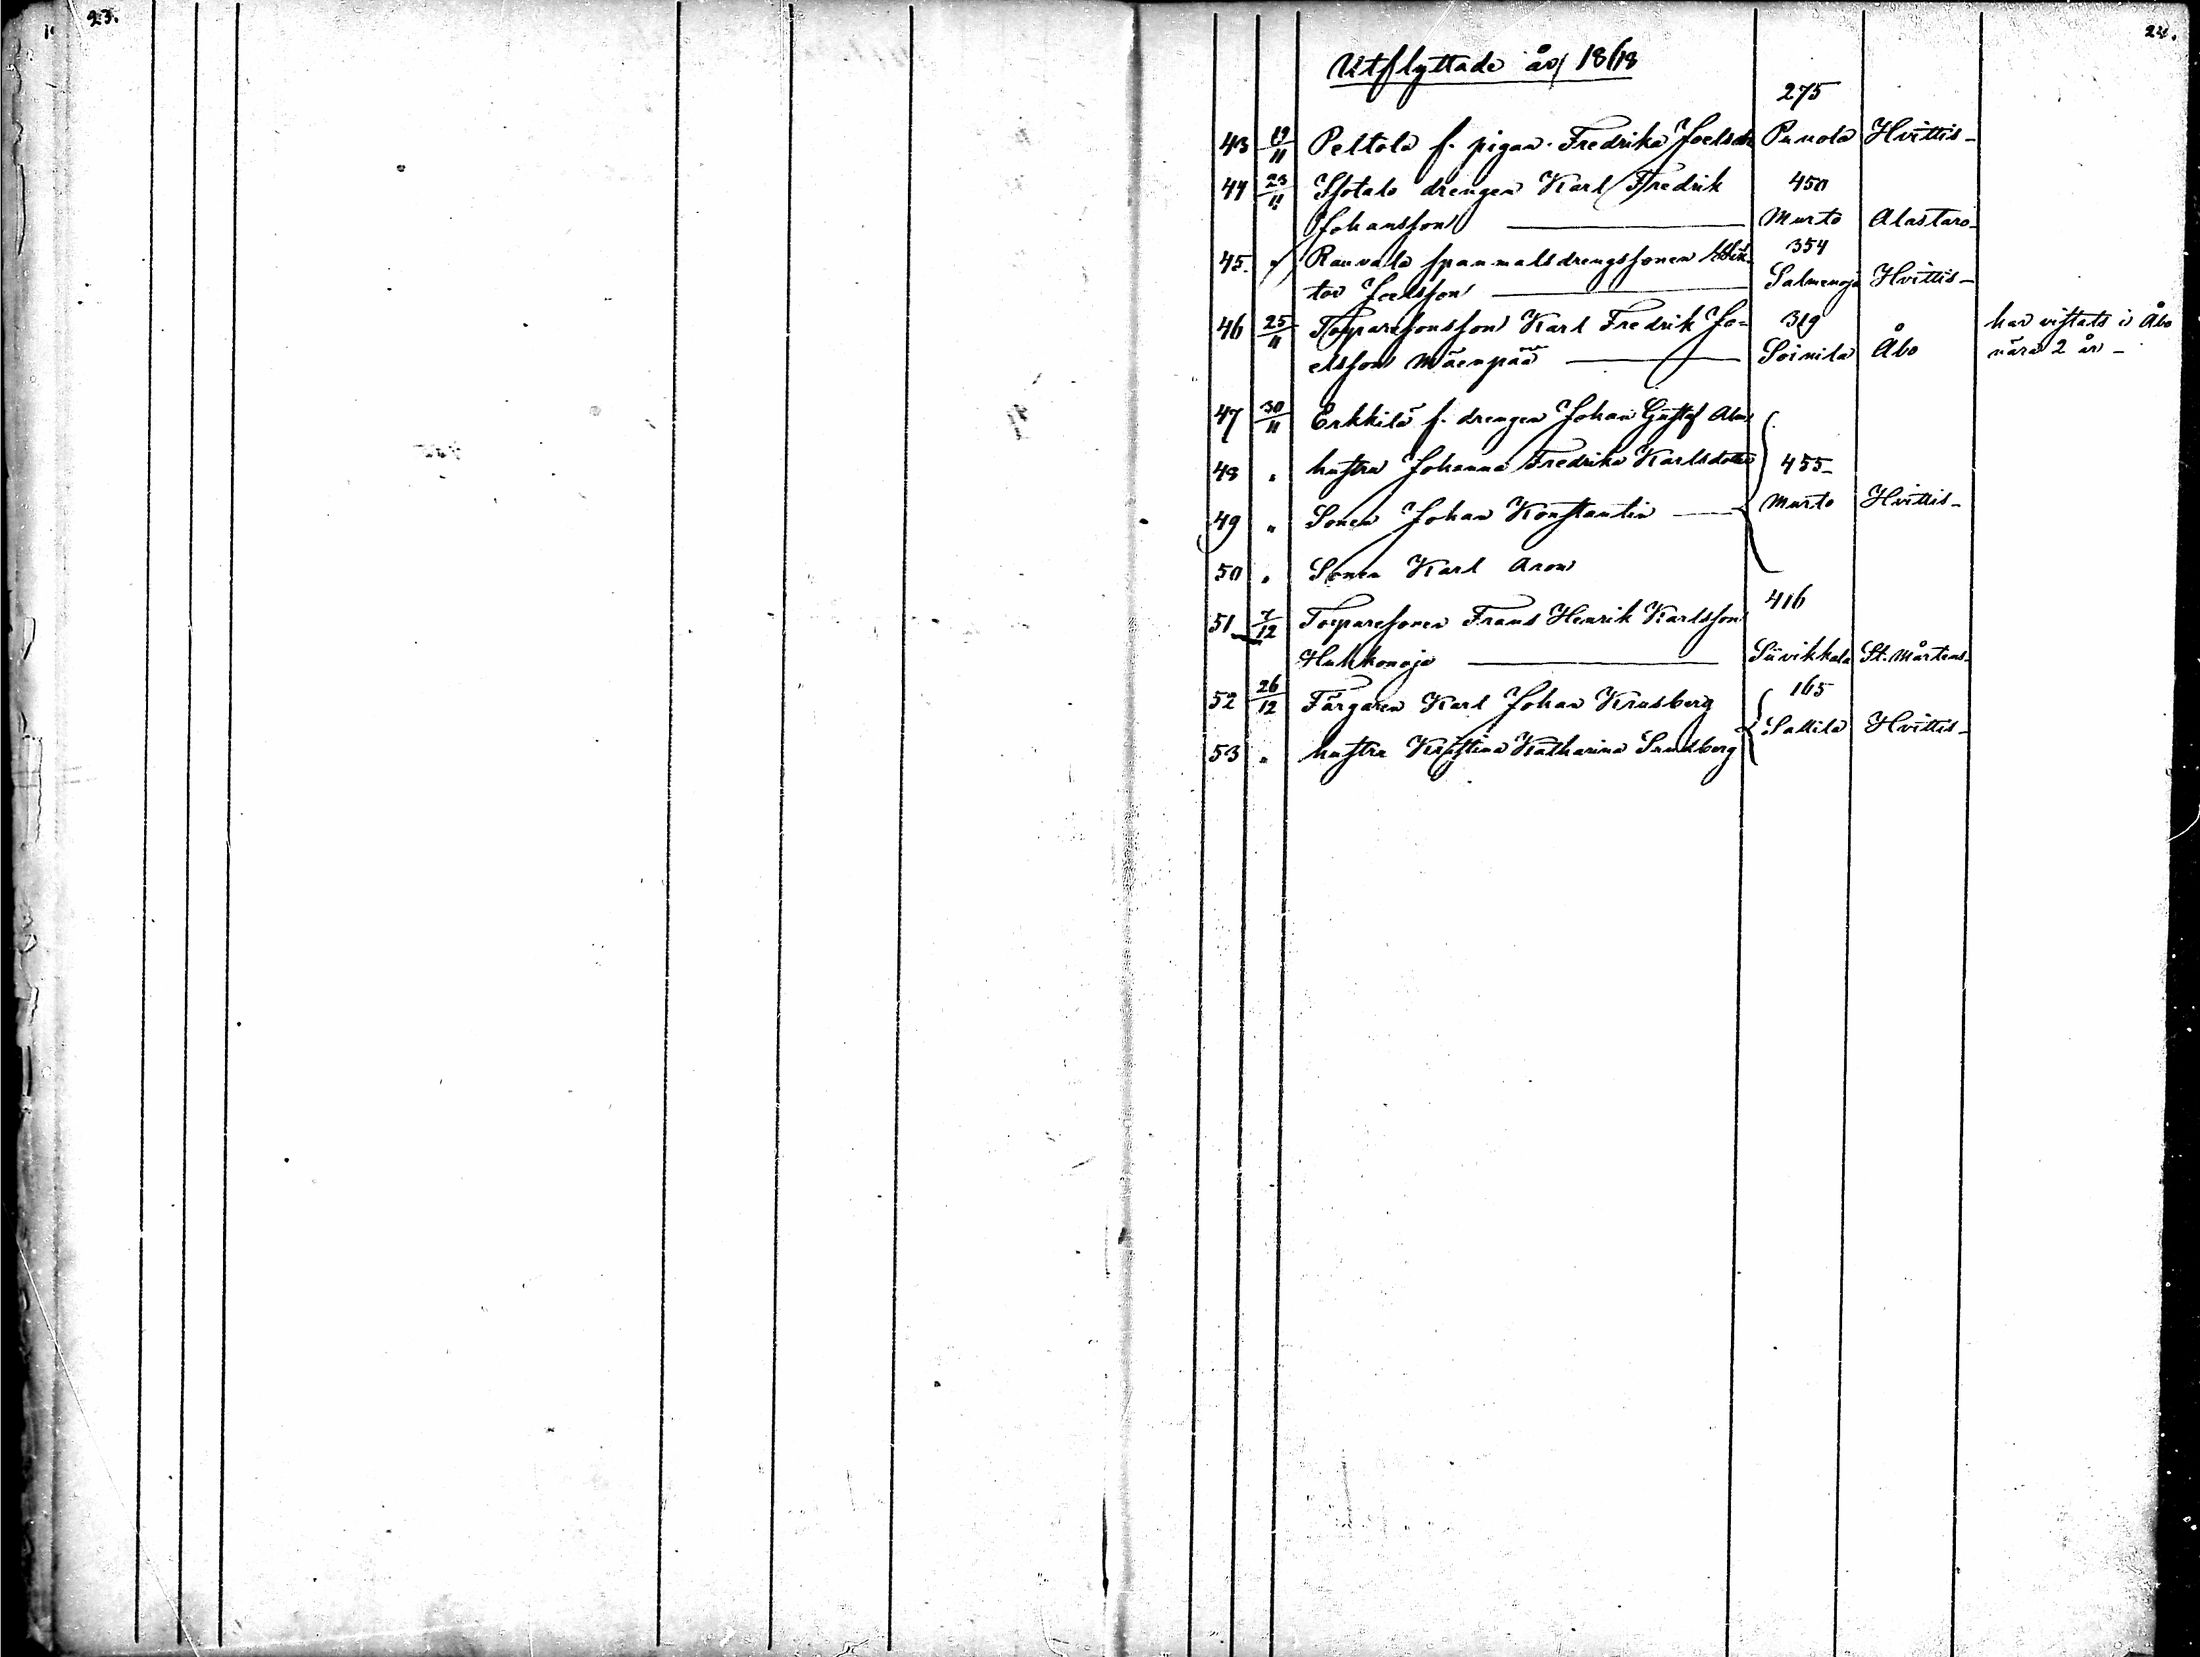 23.
24.
Utflyttade år 1868
275
43 19/11 Peltola f. pigan Fredrika Joelsdr Punola Hvittis-
44 23/11 Isotalo drengen Karl Fredrik 450
Johansson Murto Alastaro-
45. " Rauvala spanmalsdrengssonen Wik- 354
tor Joelsson Salmenoja Hvittis-
46 25/11 Torparesonsson Karl Fredrik Jo- 319 har vistats i Åbo
elsson Mäenpää Soinila Åbo nära 2 år -
47 30/11 Erkkilä f. drengen Johan Gustaf Alm
48 " hustru Johanna Fredrika Karlsdotter 455-
49 " Sonen Johan Konstantin Murto Hvittis-
50 " Sonen Karl Aron
51 7/12 Torparesonen Frans Henrik Karlsson 416
Huhkonoja Siivikkala St. Mårtens-
52 26/12 Färgaren Karl Johan Krusberg 165
Sallila Hvittis-
53 " hustru Kristina Katharina Sundberg